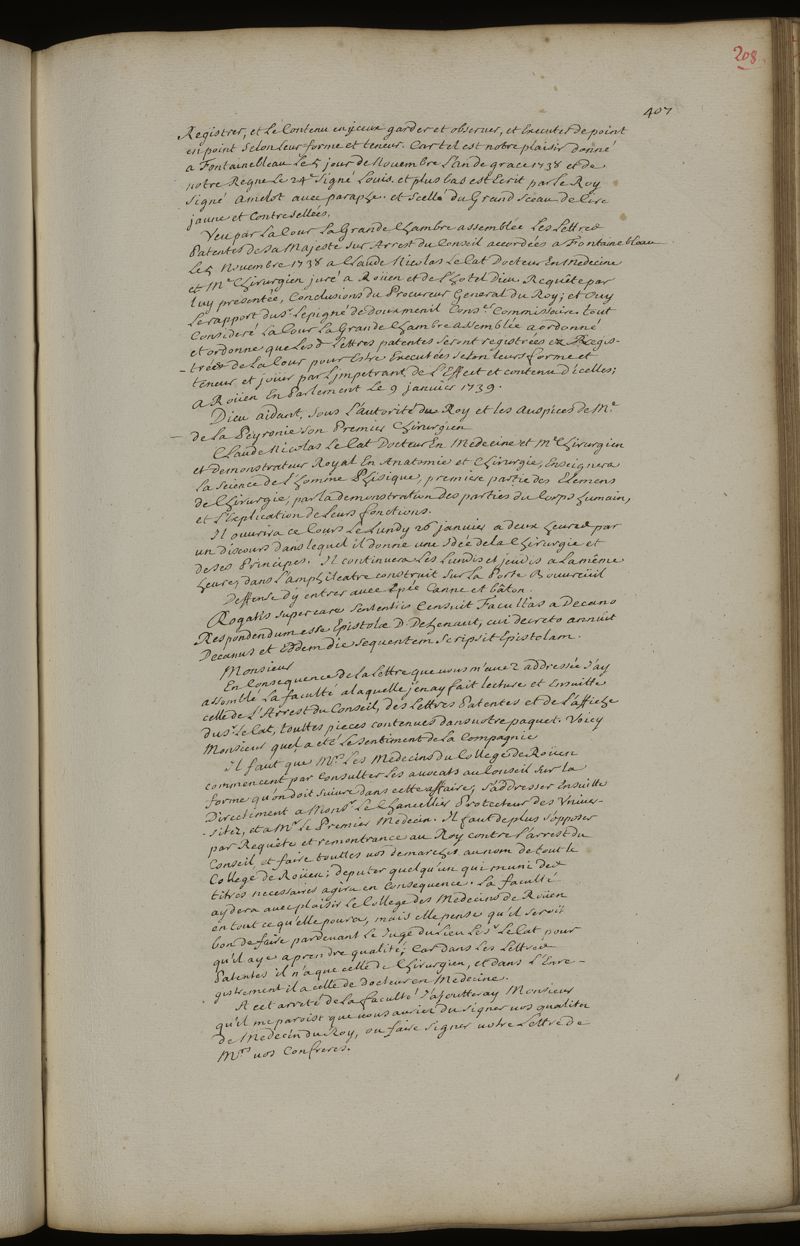 208
407
Registrer, et Le Contenu en jceux garder et observer, et Executer de point
en point Selon leur forme et teneur. Car tel est notre plaisir donné
a Fontainelleau Le 5 jour de Nouembre L'an de grace 1738 et de
notre Regne Le 24e Signé Louis. et plus bas est Ecrit par le Roy
Signé Amelot auec paraphe. et Scellé du Grand Sceau de Cire
jaune et Contresellées.
Veu par La Cour La Grande Chambre assemblée Les Lettres
Patentes de Sa Majesté Sur Arrest du Conseil accordées a Fontainebleau
Le 5 Nouembre 1738 a Claude Nicolas Le Cat Docteur En Medecine
et Me Chirurgien juré a Roüen et de L'hotel Dieu Requête par
luy presentée, Conclusions du Procureur General du Roy; et Ouy
Le rapport du Sr. Lepigné de Conser Commissaire. tout
Consideré La Cour La Grande Chambre assemblée a ordonné
et ordonne que Les d. Lettres patentes Seront registrées ez Regis-
-tres de La Cour pour Estre Executées Selon leurs forme et
teneur et jouir par L'jmpetrant de L'Effect et contenu d'icelles;
A Roüen En Parlement Le 9 janvier 1739.
Dieu aidant, Sous L'autorité du Roy et les Auspices de Mr.
De La Peyronie Son Premier Chirurgien
Claude Nicolas Le Cat Docteur En Medecine et Me Chirurgien
et demonstrateur Royal En Anatomie et Chirurgie, Enseignera
La Science de L'homme Phisique, premiere partie des Elemens
de Chirurgie, par la demonstration des parties du Corps humain,
et L'Explication de Leurs fonctions.
Il ouurira ce Cours Le Lundy 26 januier a deux heures par
un Discours dans lequel il donne une Idée de La Chirurgie et
de Ses Principes. Il continuera Les Lundis et jeudis a La même
heure, dans L'amphiteatre construit Sur La Porte Bouureüil
Deffense d'y entrer auec Epée Canne et bâton.
Rogatis Super ea re Sententiis Censuit Facultas a Decano
Respondendum esse Epistolæ D. Dehenaut, cui decreto annuit
Decanus et Eddem die Sequentem Scripsit Epistolam.
Monsieur
En Consequence de La Lettre que uous m'auez addressée J'ay
assemblé La faculté a laquelle j'en ay fait lecture et Ensuitte
celle de L'Arrest du Conseil, des Lettres Patentes et de L'affiche
du Sr. Le Cat, touttes pieces contenues dans uotre paquet. Voicy
Monsieur quel a eté Le Sentiment de La Compagnie
Il faut que Mrs. Les Medecins du College de Roüen
commencent par Consulter Les auocats au Conseil Sur La
forme qu'on doit Suiure dans cette affaire, S'addresser Ensuitte
Directement a Monsr. Le Chancellier Protecteur des Vniuer-
-sitez, et a Mr. Le Premier Medecin. Il faut de plus S'opposer
par Requête et remontrance au Roy contre L'arrest du
Conseil, et faire touttes uos demarches au nom de tout le
College de Roüen; deputer quelqu'un qui muni des
titres necessaires agira en Consequence. La faculté
aydera auec plaisir Le College des Medecins de Roüen
en tout ce qu'elle poura, mais elle pense qu'il Seroit
bon de faire pardeuant Le Juge du Lieu Le Sr. Le Cat pour
qu'il aye a prendre qualité; Car dans Les Lettres
Patentes il n'a que celle de Chirurgien, et dans L'Enre-
gistrement il a celle de docteur en Medecine.
A cet arreté de La faculté J'ajoutteray Monsieur
qu'il me paroist que uous auriez du Signer uos qualitez
de Medecin du Roy, ou faire Signer uotre Lettre de
Mrs. uos Confreres.